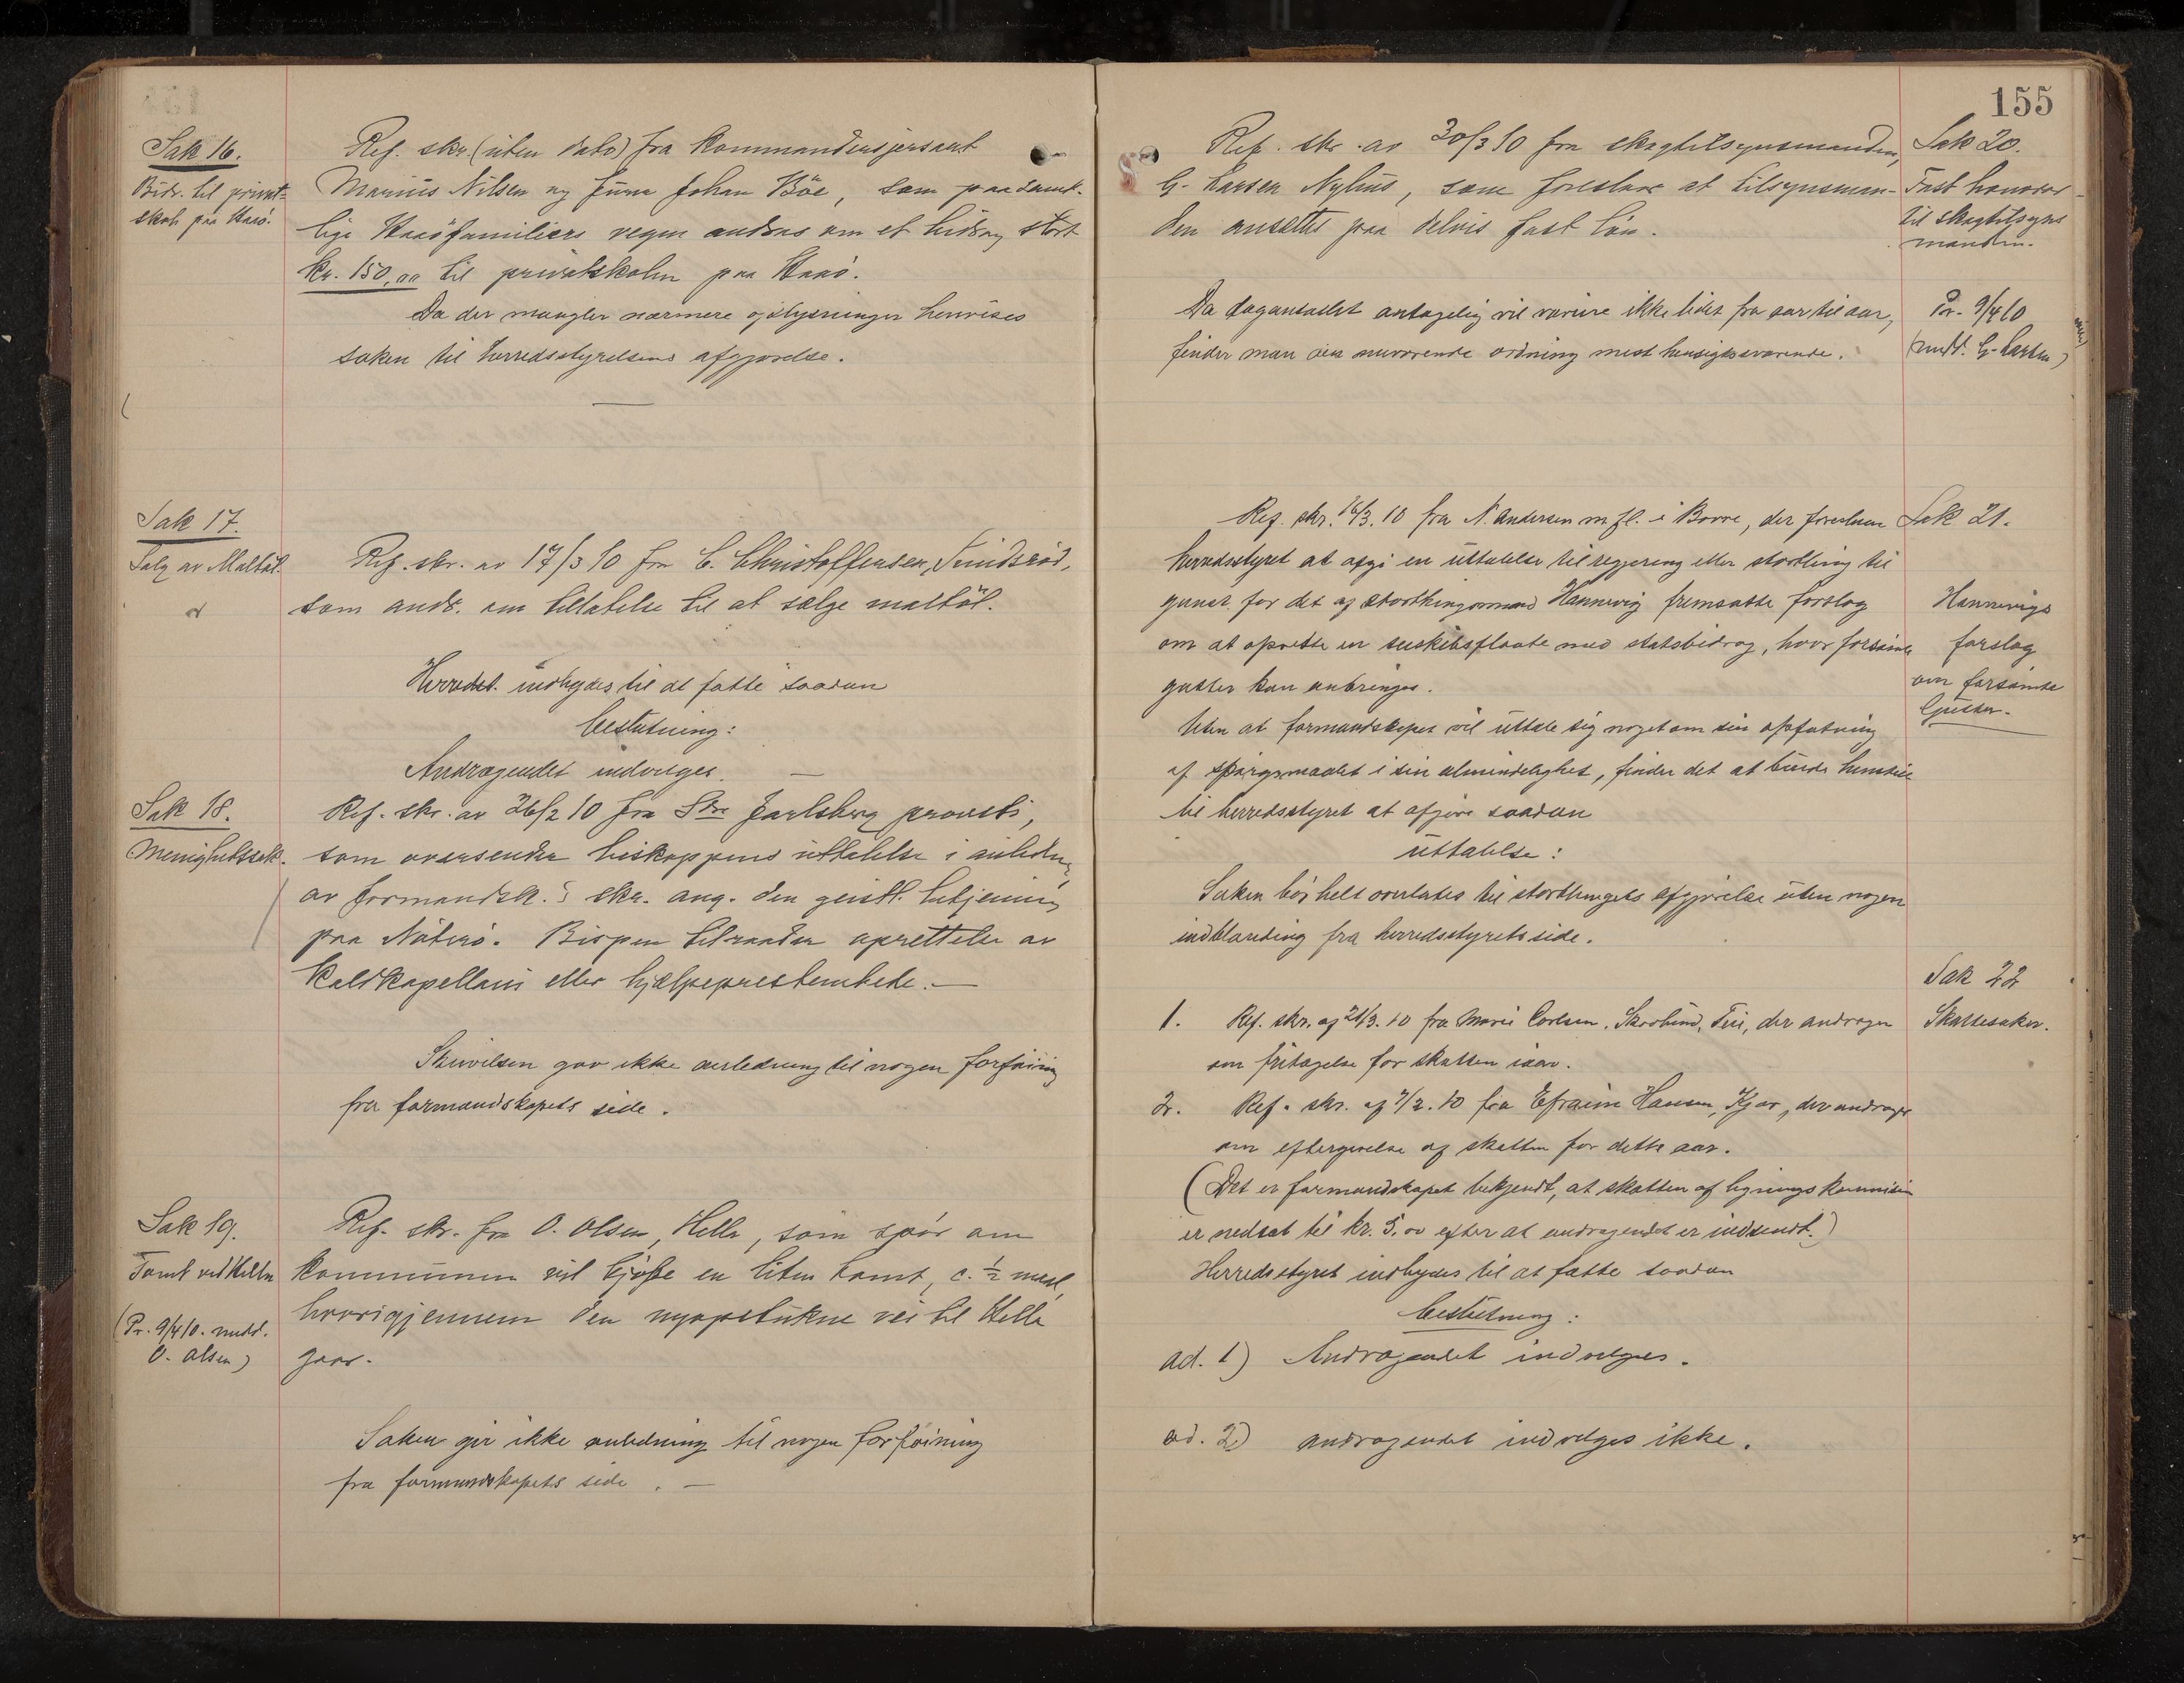 155
Sak 16.
Bidr. til privat-
skole paa Haaö.
Ref. skr. (uten dato) fra Kommandersjersant
Marius Nilsen og Johan Böe, som paa samt-
lige Haaöfamiliers vegne andrar om et bidrag stort
kr. 150,00 til privatskolen paa Haaö.
Da der mangler nærmere oplysninger henvises
saken til herredsstyrelsens afgjørelse.
Sak 17.
Salg av Maltöl.
Ref. skr. av 17/3 10 fra C. Christoffersen,
som andr. om tillatelse til at sælge maltöl.
Herredst. indbydes til at fatte saadan
beslutning:
Andragendet indvilges. —
Sak 18.
Menighetssak.
Ref. skr. av 26/2 10 fra Søre Jarlsberg provsti,
som oversender biskoppens uttalelse i anledn.
av formandsk.s skr. ang. den geistl. betjening
paa Nöterö. Bispen tilraader oprettelse av
kaldkapellani eller hjælpeprestembede. —
Skrivelsen gav ikke anledning til nogen forföining
fra formandskapets side.
Sak 19.
Tomt ved Hella
(Pr. 9/4 10. medd.
O. Olsen)
Ref. skr. fra O. Olsen, Hella, som spör om
kommunen vil kjöbe en liten tomt, c. 1/2 maal,
hvorigjennem den nyopstukne vei til Hella
gaar.
Saken gir ikke anledning til nogen forföining
fra formandskapets side. —
Ref. skr. av 30/3 10 fra skogtilsynsmanden,
G. Larsen Nyhus, som foreslaar at tilsynsman-
den ansættes paa delvis fast lön.
Sak 20.
Fast honorar
til skogtilsyns
manden.
Da dagantallet antagelig vil variere ikke lidet fra aar til aar,
finder man den nuværende ordning mest hensigtssvarende.
Pr. 9/4 10
(medd. G. Larsen)
Ref. skr. 16/3. 10 fra N. Andersen m. fl. i Borre, der foreslaar
herredsstyret at afgi en uttalelse til regjering eller storthing til
gunst for det af storthingsmand Hannevig fremsatte forslag
om at oprette en seilskibsflaate med statsbidrag, hvor forsömte
gutter kan anbringes.
Sak 21.
Hannevigs
forslag
om forsömte
Gutter.
Uten at formandskapet vil uttale sig noget om sin opfatning
af spörgsmaalet i sin almindelighet, finder det at burde henstille
til herredsstyret at afgive saadan
uttalelse:
Saken bör helt overlates til storthingets afgjörelse uten nogen
indblanding fra herredsstyrets side.
Sak 22
Skattesaker.
1. Ref. skr. af 21/3. 10 fra Marie Carlsen, Skovlund, Teie, der andrager
om fritagelse for skatten iaar.
2. Ref. skr. af 7/2. 10 fra Efraim Hansen, Kjær, der andrager
om eftergivelse af skatten for dette aar.
(Det er formandskapet bekjendt, at skatten af ligningskommisionen
er nedsat til kr. 5.00 efter at andragendet er indsendt.)
Herredsstyret indbydes til at fatte saadan
beslutning:
ad. 1) Andragendet indvilges.
ad. 2) andragendet indvilges ikke.